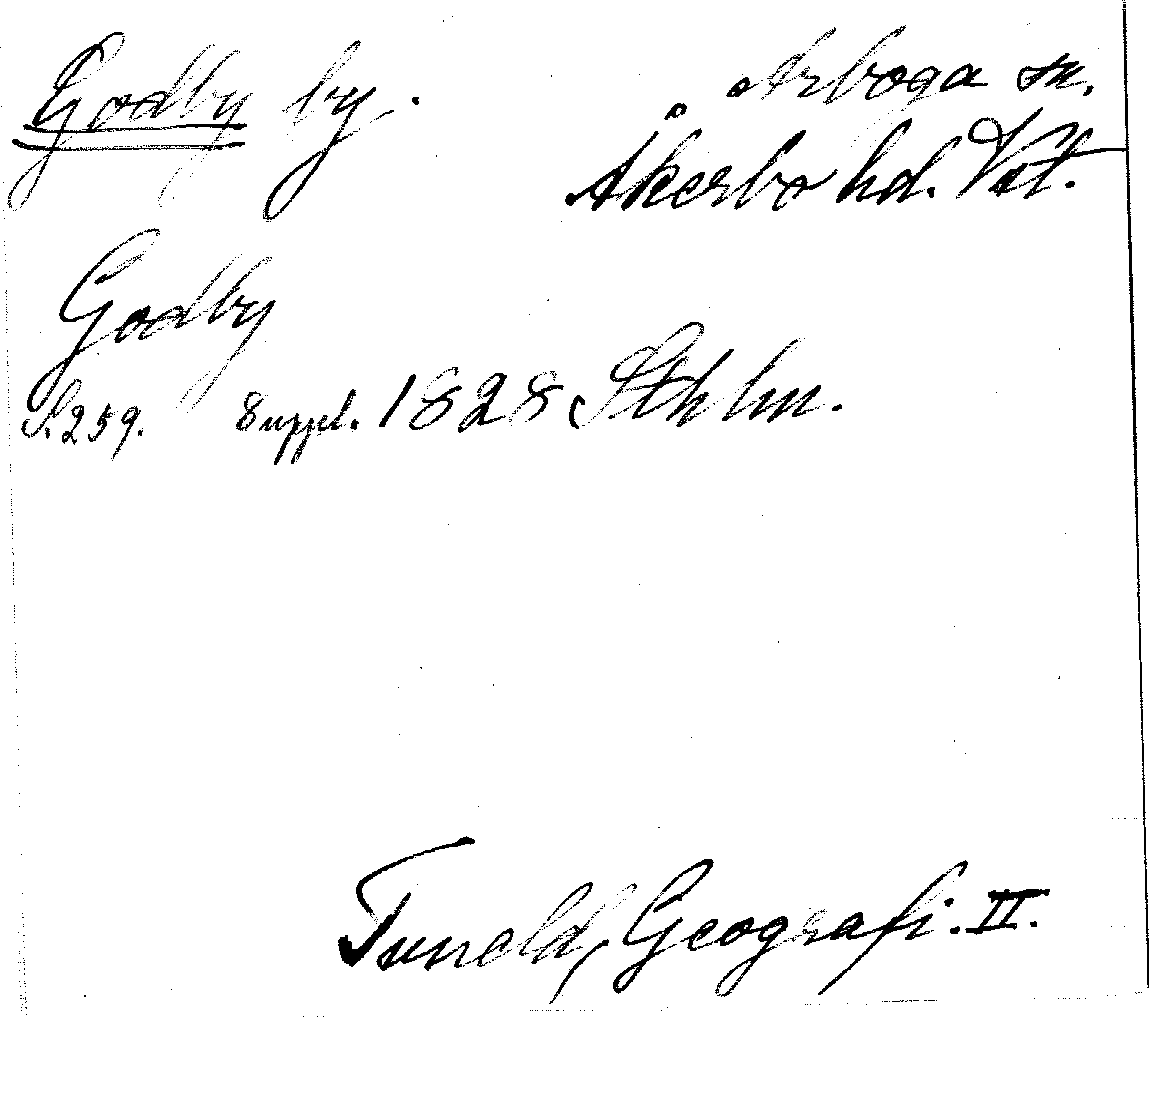 Godby by. Arboga sn.
Åkerbo hd. Vstl.
Godby
S. 259. Suppl. 1828 Sthlm.
Tuneld, Geografi. II.